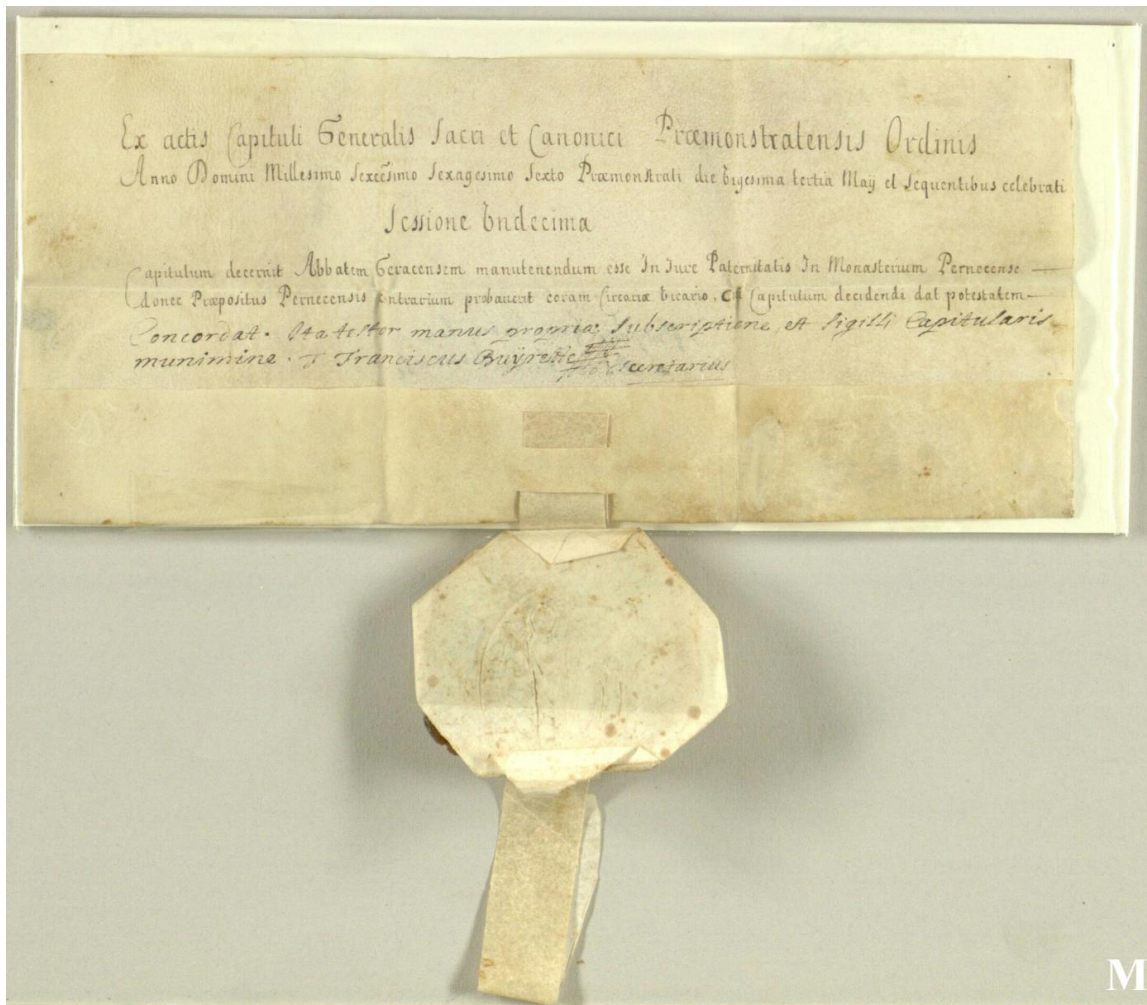 Ex actis Capituli Generalis Sacri et Canonici Præmonstratensis Ordinis
Anno Domini Millesimo Sexcẽsimo Sexagesimo Sexto Præmonstrati die Vigesima tertia Maÿ et Sequentibus celebrati
Sessione Undecima
Capitulum decernit Abbatem Geracensem manutenendum esse In Jure Paternitatis In Monasterium Pernecense
donec Præpositus Pernecensis Contrarium probaverit coram Circariæ Vicario. Cui Capitulum decidendi dat potestatem
Concordat. Ita testor manus propriæ Subscriptione, et Sigilli Capitularis
munimine. F Franciscus Secretarius
M